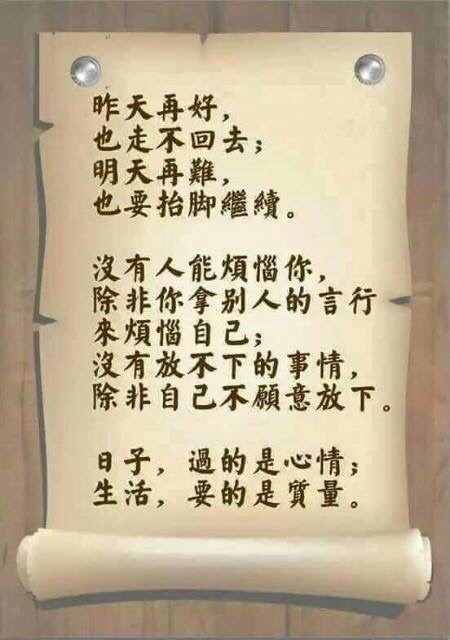 昨天再好，
也走不回去；
明天再難，
也要抬脚繼續。
沒有人能煩惱你，
除非你拿别人的言行
來煩惱自己；
沒有放不下的事情，
除非自己不願意放下。
日子，過的是心情；
生活，要的是質量。